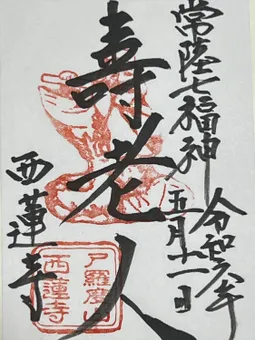 常陸七福神
令和六年
五月十一日
壽老人
西蓮寺
尸羅度山
西蓮寺